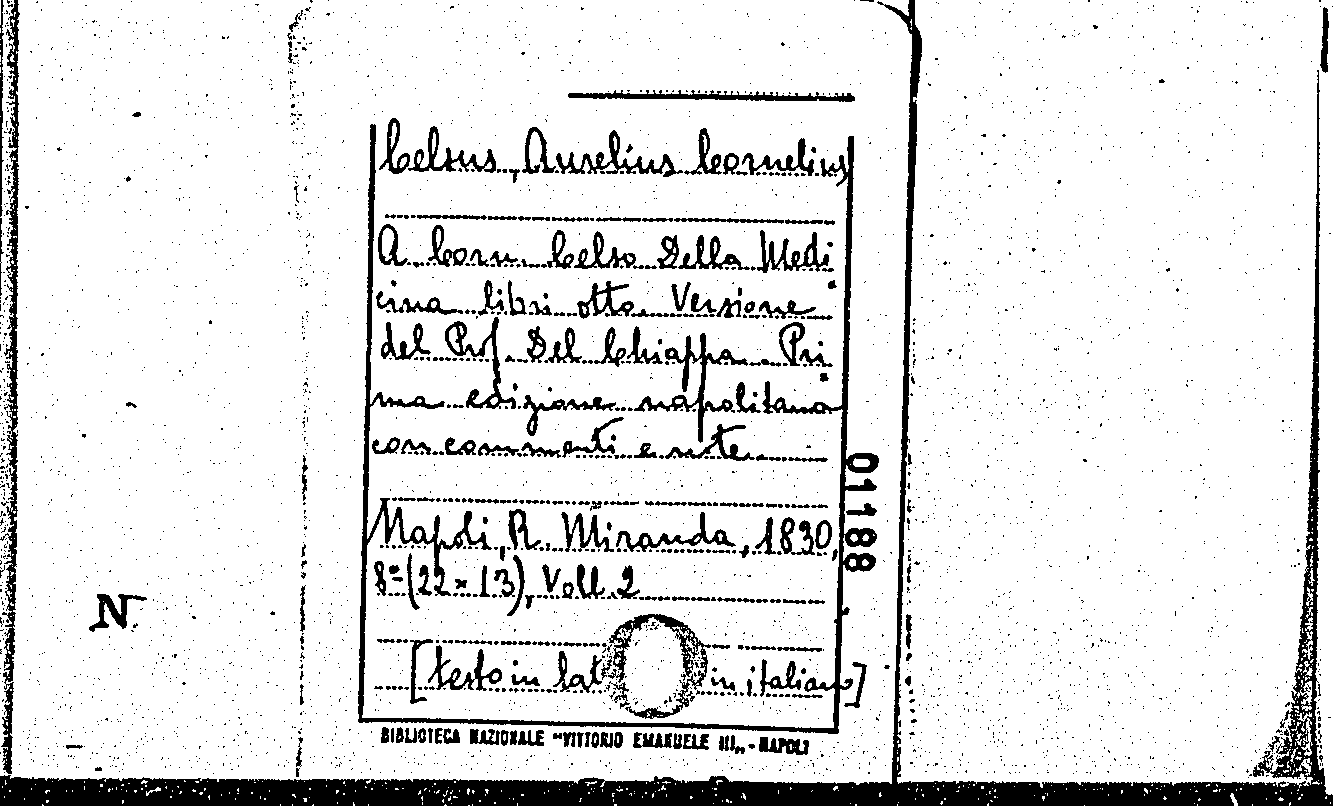 Celsus, Aurelius Cornelius
A. Corn. Celso Della Medi
cina libri otto. Versione
del Prof. Del Chiappa. Pri
ma edizione napolitana
con commenti e note.
Napoli, R. Miranda, 1830,
8º-(22×13), Voll. 2
[testo in lat in italiano]
BIBLIOTECA NAZIONALE "VITTORIO EMANUELE III„ - NAPOLI
01188
N